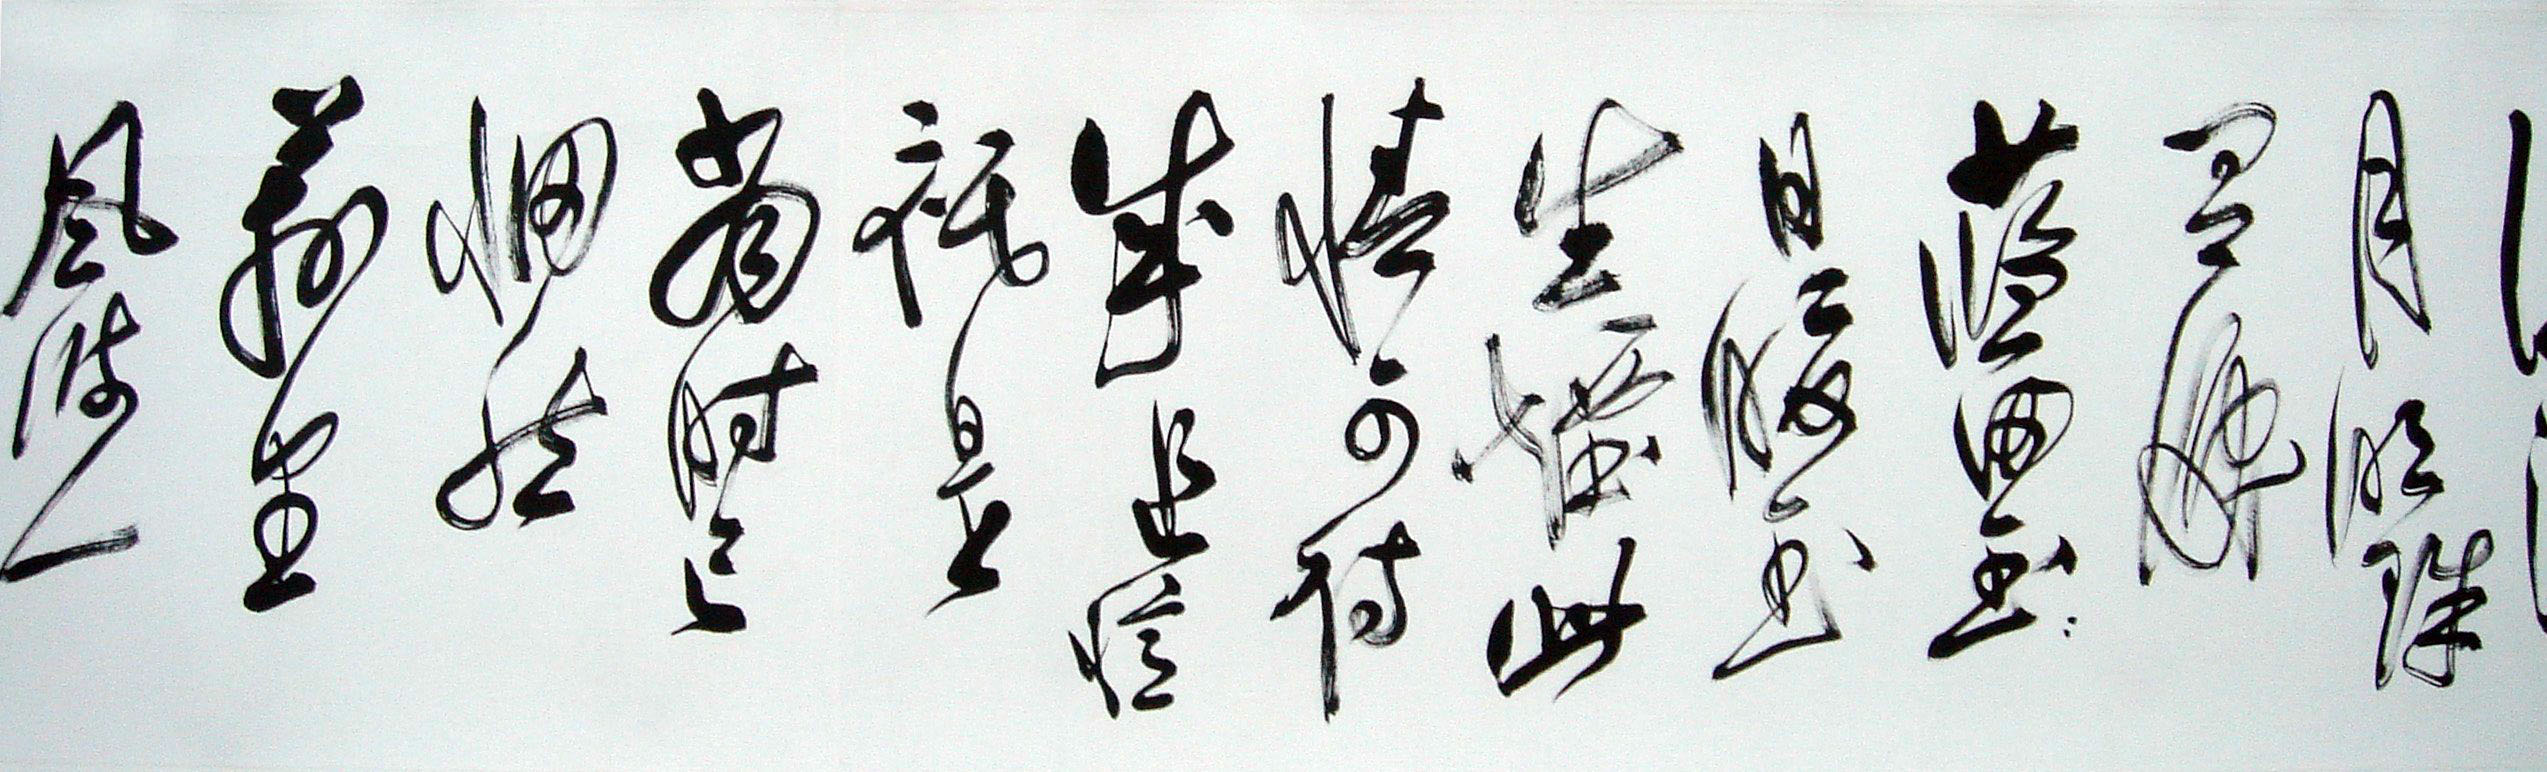 月明珠
有淚
藍田玉
日暖玉
生煙此
情可待
成追憶
祗是
當時已
惘然